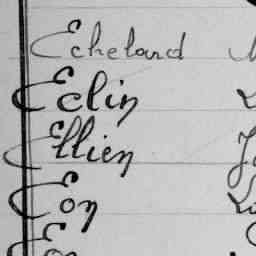 Echelard
Eclin
Ellien
Eon